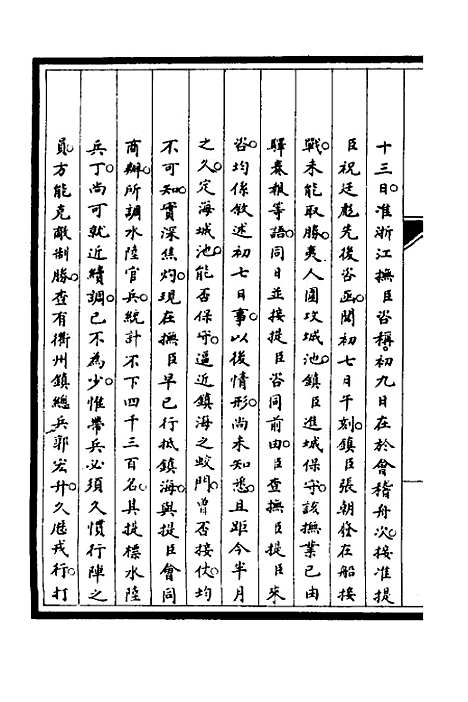 十三日准浙江撫臣咨稱初九日在於會稽舟次接准提
臣祝廷彪先後咨函聞初七日午刻鎮臣張朝發在船接
戰未能取勝夷人圍攻城池鎮臣進城保守該撫業已由
驛奏報等語同日並接提臣咨同前由臣查撫臣提臣來
咨均係敘述初七日事以後情形尚未知悉且距今半月
之久定海城池能否保守逼近鎮海之蛟門曾否接仗均
不可知實深焦灼現在撫臣早已行抵鎮海與提臣會同
商辦所調水陸官兵統計不下四千三百名其提標水陸
兵丁尚可就近續調已不為少惟帶兵必須久慣行陣之
員方能克敵制勝查有衢州鎮總兵郭宏升久歷戎行打